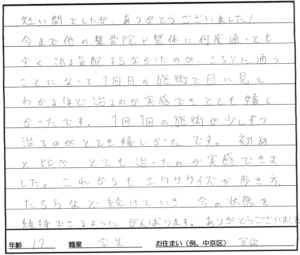 短い間でしたが、ありがとうございました!
今まで他の整骨院や整体に何度通っても
全く治る気配すらなかったのが、こちらに通う
ことになって1回目の施術で目に見て
わかるほど治るのが実感できとても嬉し
かったです。1回1回の施術で少しずつ
治るのがとても嬉しかたです。初め
と比べ、とても治ったのが実感できま
した。これからもエクササイズや歩き方、
たち方など続けていき、今の状態を
維持できるようにがんばります。ありがとうございました
年齢 17 職業 学生 お住まい(例、中京区) 宇治